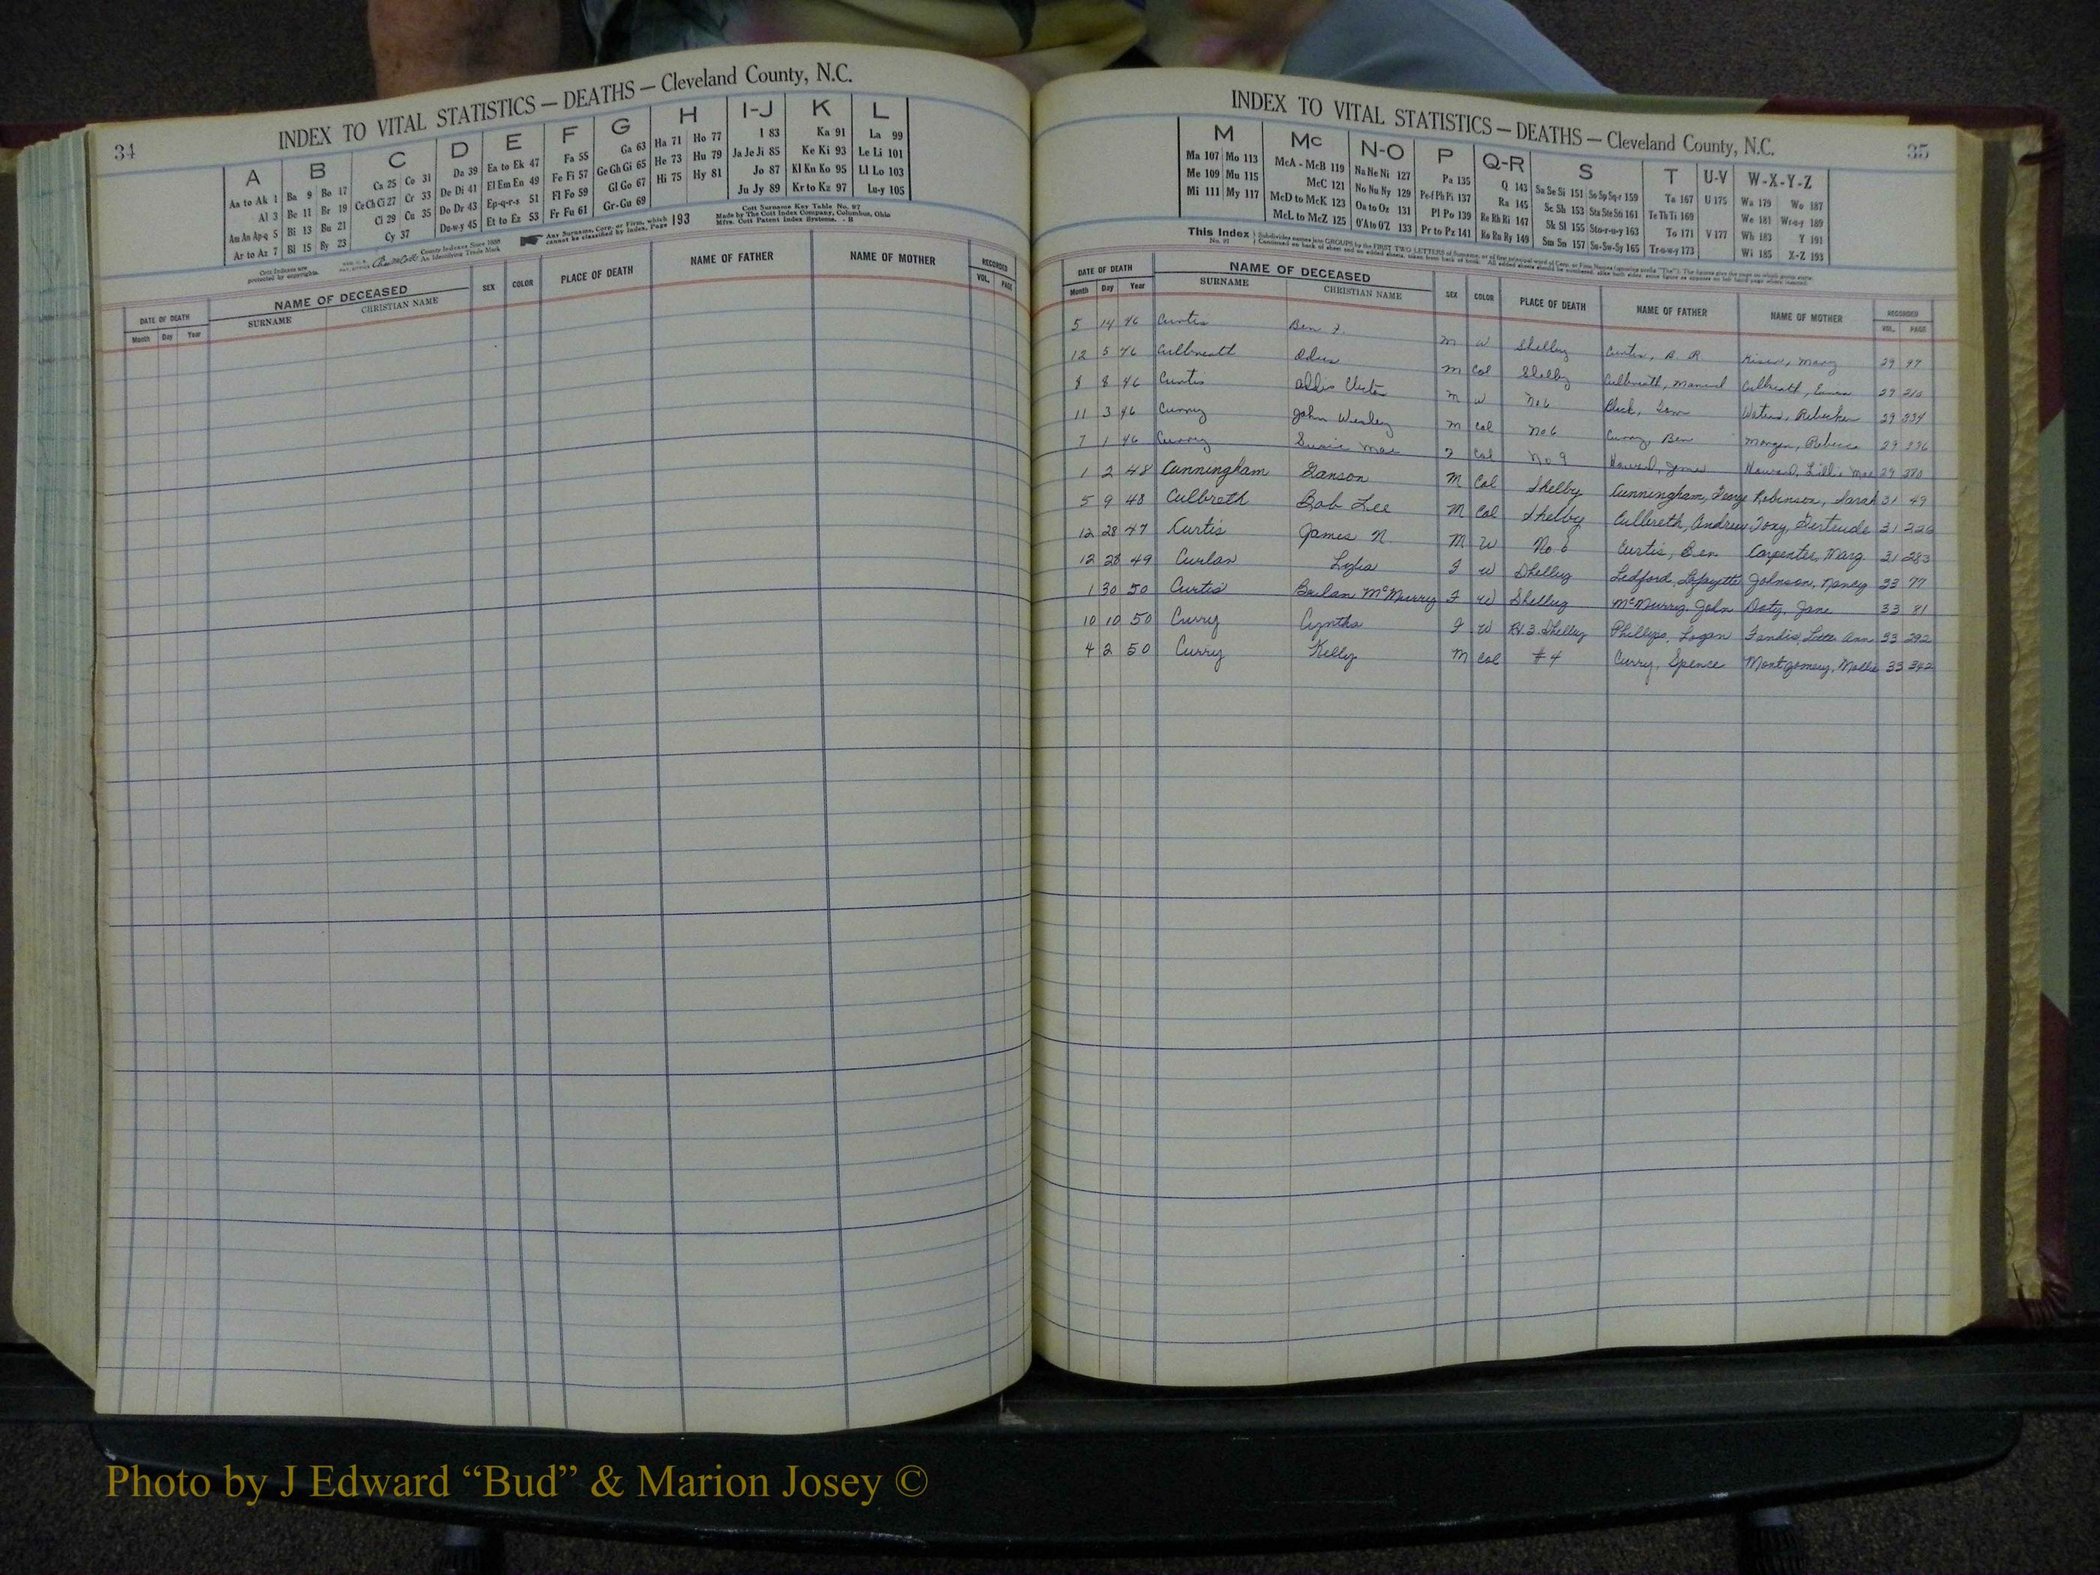 34
INDEX TO VITAL STATISTICS — DEATHS — Cleveland County, N.C.
A B C D E F G H I-J K L
Aa to Ak 1 Ba 9 Bo 17 Ca 25 Co 31 Da 39 Ea to Ek 47 Fa 55 Ga 63 Ha 71 Ho 77 I 83 Ka 91 La 99
Al 3 Be 11 Br 19 Ce Ch Ci 27 Cr 33 De Di 41 El Em En 49 Fe Fi 57 Ge Gh Gi 65 He 73 Hu 79 Ja Je Ji 85 Ke Ki 93 Le Li 101
Am An Ap-q 5 Bi 13 Bu 21 Cl 29 Cu 35 Do Dr 43 Ep-q-r-s 51 Fl Fo 59 Gl Go 67 Hi 75 Hy 81 Jo 87 Kl Kn Ko 95 Ll Lo 103
Ar to Az 7 Bl 15 By 23 Cy 37 Du-w-y 45 Et to Ez 53 Fr Fu 61 Gr-Gu 69 Ju Jy 89 Kr to Kz 97 Lu-y 105
Cott Indexes are protected by copyrights.
County Indexes Since 1888
An Identifying Trade Mark
Any Surname, Corp. or Firm, which cannot be classified by Index, Page 193
Cott Surname Key Table No. 97
Made by The Cott Index Company, Columbus, Ohio
Mfrs. Cott Patent Index Systems. - B
DATE OF DEATH NAME OF DECEASED SEX COLOR PLACE OF DEATH NAME OF FATHER NAME OF MOTHER RECORDED
Month Day Year SURNAME CHRISTIAN NAME VOL. PAGE
INDEX TO VITAL STATISTICS — DEATHS — Cleveland County, N.C.
35
M Mc N-O P Q-R S T U-V W-X-Y-Z
Ma 107 Mo 113 McA - McB 119 Na Ne Ni 127 Pa 135 Q 143 Sa Se Si 151 So Sp Sq-r 159 Ta 167 U 175 Wa 179 Wo 187
Me 109 Mu 115 McC 121 No Nu Ny 129 Pe-f Ph Pi 137 Ra 145 Sc Sh 153 Sta Ste Sti 161 Te Th Ti 169 We 181 Wr-u-y 189
Mi 111 My 117 McD to McK 123 Oa to Oz 131 Pl Po 139 Re Rh Ri 147 Sk Sl 155 Sto-r-u-y 163 To 171 V 177 Wh 183 Y 191
McL to McZ 125 O'A to O'Z 133 Pr to Pz 141 Ro Ru Ry 149 Sm Sn 157 Su-Sw-Sy 165 Tr-u-w-y 173 Wi 185 X-Z 193
This Index
DATE OF DEATH NAME OF DECEASED SEX COLOR PLACE OF DEATH NAME OF FATHER NAME OF MOTHER RECORDED
Month Day Year SURNAME CHRISTIAN NAME VOL. PAGE
5 14 46 Curtis Ben F. M W Shelby Curtis, B. R. Mary 29 97
12 5 46 Culbreath Odus M Col Shelby Culbreath, Manuel Culbreath, 29 210
8 8 46 Curtis M W No 6 Tom Waters, Rebecker 29 334
11 3 46 Curry John Wesley M Col No 6 Curry, Ben Morgan, Rebecca 29 336
7 1 46 Curry Susie Mae F Col No 9 Howard, Howard, Lillie Mae 29 370
1 2 48 Cunningham Ranson M Col Shelby Cunningham, George Robinson, Sarah 31 49
5 9 48 Culbreth Bob Lee M Col Shelby Culbreth, Andrew Tony, Gertrude 31 226
12 28 47 Curtis James N. M W No. 6 Curtis, Ben Carpenter, Marg 31 283
12 28 49 Curlan F W Shelby Ledford, Lafayette Johnson, Nancy 33 77
1 30 50 Curtis Beulan McMurry F W Shelby McMurry, John Doty, Jane 33 81
10 10 50 Curry Cyntha F W Rt. 3. Shelby Phillips, Logan Ann 33 292
4 2 50 Curry Kelly M Col #4 Curry, Spence Montgomery, Mollie 33 342
Photo by J Edward “Bud” & Marion Josey ©